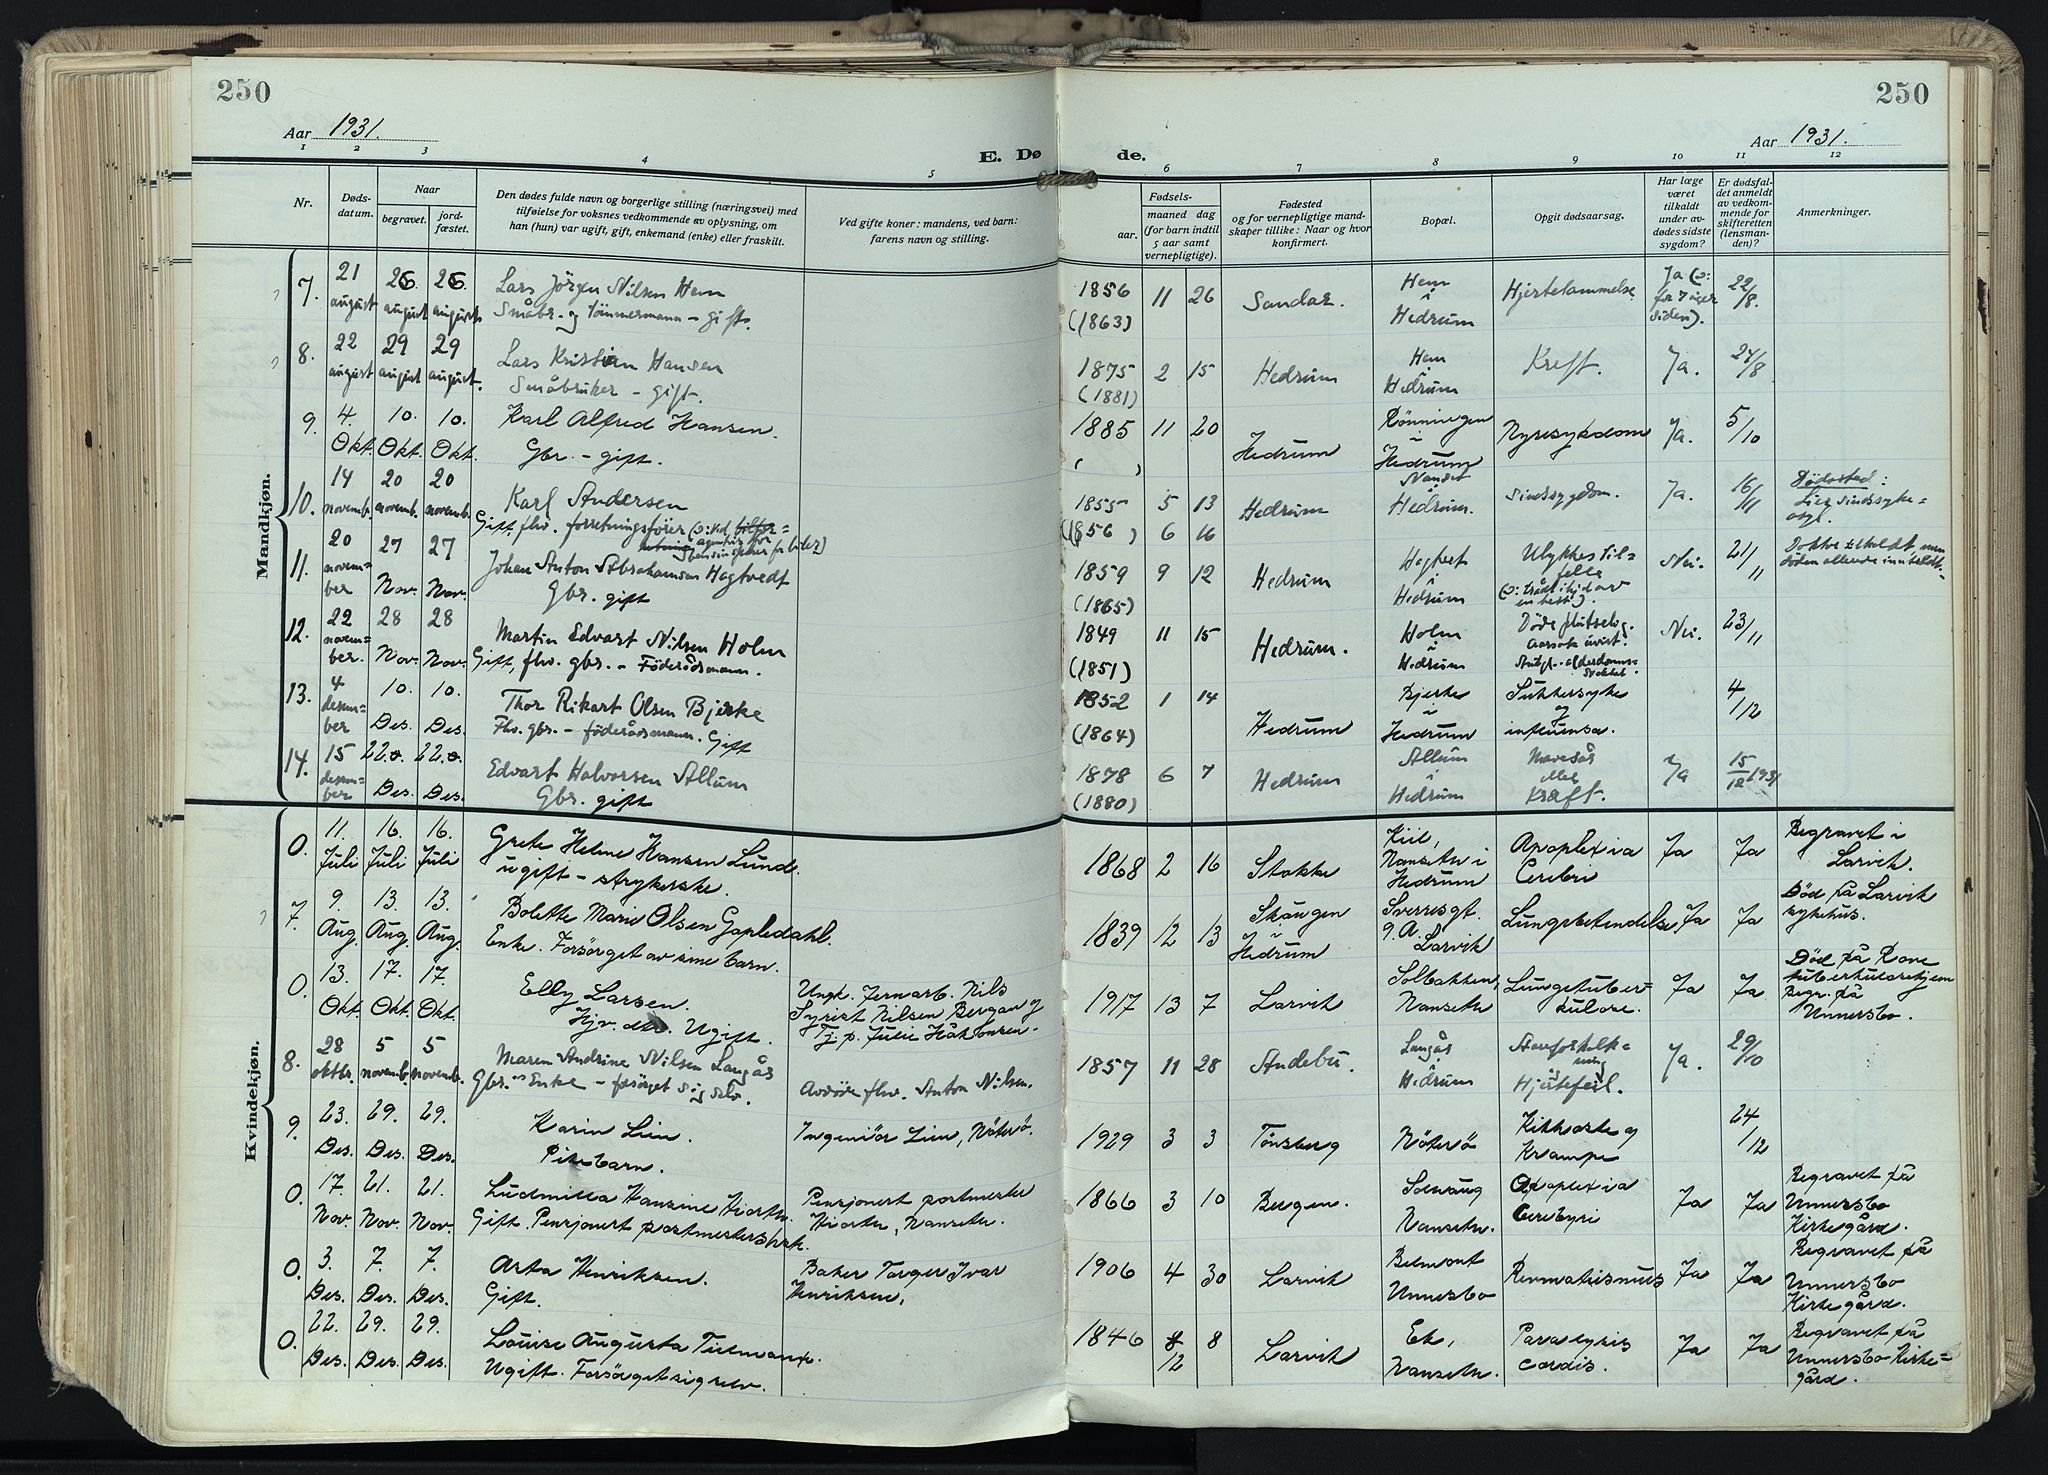 250
250
Aar 1931.
Aar 1931.
E. Dø
de.
1 2 3 4 5 6 7 8 9 10 11 12
Nr.
Døds-
datum.
Naar
begravet.
jord-
fæstet.
Den dødes fulde navn og borgerlige stilling (næringsvei) med
tilføielse for voksnes vedkommende av oplysning, om
han (hun) var ugift, gift, enkemand (enke) eller fraskilt.
Ved gifte koner: mandens, ved barn:
farens navn og stilling.
Fødsels-
aar.
maaned dag
(for barn indtil
5 aar samt
vernepligtige).
Fødested
og for vernepligtige mand-
skaper tillike: Naar og hvor
konfirmert.
Bopæl.
Opgit dødsaarsag.
Har læge
været
tilkaldt
under av-
dødes sidste
sygdom?
Er dødsfal-
det anmeldt
av vedkom-
mende for
skifteretten
(lensman-
den)?
Anmerkninger.
Mandkjøn.
7. 21 august 26 august 26 august
Lars Jörgen Nilsen Hem
Småbr. og tömmermann – gift.
1856 11 26 Sandar. Hem i Hedrum Hjertelammelse Ja (ɔ: for 7 siden). 22/8.
(1863)
8. 22 august 29 august 29 august.
Lars Kristian Hansen
Småbruker – gift.
1875 2 15 Hedrum Hem i Hedrum Kreft. Ja. 24/8
(1881)
9. 4. Okt. 10. Okt. 10. Okt.
Karl Alfred Hansen.
Gbr. – gift.
1885 11 20 Hedrum Rönningen i Hedrum Nyresykdom Ja. 5/10
( )
10. 14 novemb. 20 novemb. 20 novemb.
Karl Andersen
Gift, fhv. forretningsfører (ɔ: ved
1855 5 13 Hedrum Nanset i Hedrum. Sindssygdom. Ja. 16/11 Dødssted: Lier Sindssyke-
asyl.
(1856) 6 16
11. 20 novem-
ber 27 Nov. 27 Nov.
Johan Anton Abrahamsen Hogtvedt
Gbr. gift
1859 9 12 Hedrum Hogtvet i Hedrum Ulykkestil-
felle Nei. 21/11
(1865)
12. 22 novem-
ber. 28 Nov. 28 Nov.
Martin Edvart Nilsen Holm
Gift, fhv. gbr. – Föderådsmann.
1849 11 15 Hedrum. Holm i Hedrum Döde plutselig.
Aarsak uvist. Nei. 23/11
(1851)
13. 4 desem-
ber 10. Des. 10. Des.
Thor Rikart Olsen Bjerke
Fhv. gbr. – föderådsmann. Gift
1852 1 14 Hedrum Bjerke i Hedrum Sukkersyke og influensa. 4/12
(1864)
14. 15 desem-
ber 22. Des. 22. Des.
Edvart Halvorsen Allum
Gbr. gift
1878 6 7 Hedrum Allum i Hedrum Mavesår eller Kræft. Ja 15/12 1931
(1880)
Kvindekjøn.
0. 11. Juli 16. Juli 16. Juli
Grete Helene Hansen Lund.
ugift – strykerske.
1868 2 16 Stokke Kiil, Nansetn i Hedrum Apoplexia Cerebri Ja Ja Begravet i
Larvik.
7. 9. Aug. 13. Aug. 13. Aug.
Bolette Marie Olsen Gopledahl.
Enke. Forsörget av sine barn.
1839 12 13 Skången i Hedrum Sverresgt. 9. A. Larvik Lungebetendelse Ja Ja Död på Larvik
sykehus.
0. 13. Okt. 17. Okt. 17. Okt
Elly Larsen.
Hjv. dtr. Ugift.
Ungk. Jernarb. Nils
Syvert Nilsen Bergan og
Tj. p. Julie Håkonsen.
1917 13 7 Larvik Solbakken, Nansetn Lungetuber-
kulose. Ja Ja Död på Rove
tuberkulosehjem
Begr. på
Unnersbo.
8. 28 oktbr. 5 novemb. 5 novemb.
Maren Andrine Nilsen Langås
Gbr. Enke – forsörget sig selv.
Avdöde fhv. Anton Nilsen.
1857 11 28 Andebu. Langås i Hedrum Aareforkalk-
ning Hjertefeil. Ja. 29/10
9. 23. Des. 29. Des. 29. Des.
Karin Lien.
Pikebarn.
Ingeniör Lien, Nöterö.
1929 3 3 Tönsberg Nöterö Kikhoste og Krampe 24/12
0. 17. Nov. 21. Nov. 21. Nov.
Ludmilla Hansine Hiorth.
Gift. Pensjonert postmesters
Pensjonert postmester
Hiorth, Nansetn.
1866 3 10 Bergen. Solvang Nansetn. Apoplexia Cerebri Ja Ja Begravet på
Unnersbo
Kirkegård.
0. 3. Des. 7. Des. 7. Des.
Asta Henriksen.
Gift.
Baker Torger Ivar
Henriksen,
1906 4 30 Larvik Belmont Unnersbo Revmatismus Ja Ja Begravet på
Unnersbo
Kirkegård.
0. 22. Des. 29. Des. 29. Des.
Louise Augusta
Ugift. Forsörget sig selv.
1846 12 8 Larvik Ek, Nansetn. Paralysis cordis. Ja Ja Begravet på
Unnersbo Kirke-
gård.